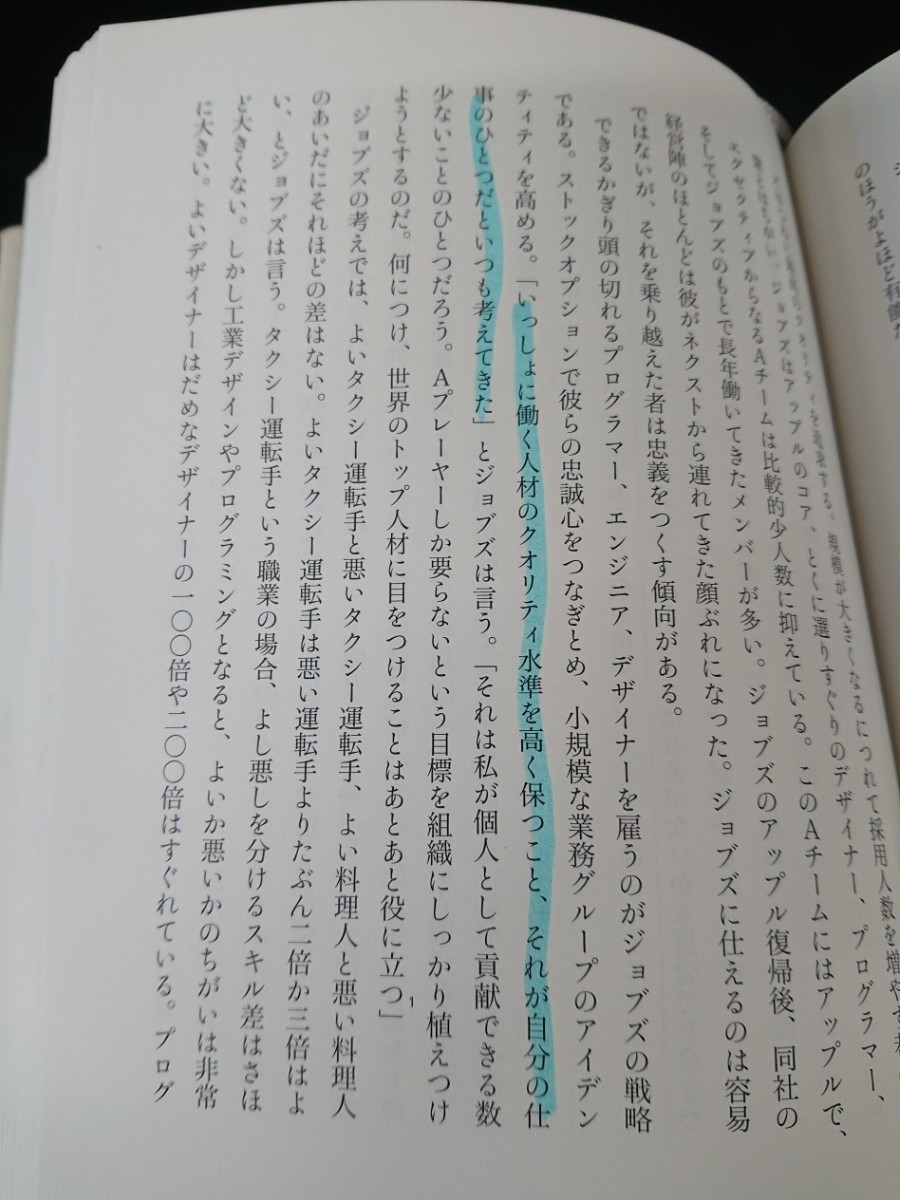 のほうがよほど有働だ
クオリティを追求する。規模が大きくなるにつれて採用人数を増やす
ジョブズはアップルのコア、とくに選りすぐりのデザイナー、プログラマー、
エクゼクティブからなるAチームは比較的少人数に抑えている。このAチームにはアップルで、
そしてジョブズのもとで長年働いてきたメンバーが多い。ジョブズのアップル復帰後、同社の
経営陣のほとんどは彼がネクストから連れてきた顔ぶれになった。ジョブズに仕えるのは容易
ではないが、それを乗り越えた者は忠義をつくす傾向がある。
できるかぎり頭の切れるプログラマー、エンジニア、デザイナーを雇うのがジョブズの戦略
である。ストックオプションで彼らの忠誠心をつなぎとめ、小規模な業務グループのアイデン
ティティを高める。「いっしょに働く人材のクオリティ水準を高く保つこと、それが自分の仕
事のひとつだといつも考えてきた」とジョブズは言う。「それは私が個人として貢献できる数
少ないことのひとつだろう。Aプレーヤーしか要らないという目標を組織にしっかり植えつけ
ようとするのだ。何につけ、世界のトップ人材に目をつけることはあとあと役に立つ」1
ジョブズの考えでは、よいタクシー運転手と悪いタクシー運転手、よい料理人と悪い料理人
のあいだにそれほどの差はない。よいタクシー運転手は悪い運転手よりたぶん二倍か三倍はよ
い、とジョブズは言う。タクシー運転手という職業の場合、よし悪しを分けるスキル差はさほ
ど大きくない。しかし工業デザインやプログラミングとなると、よいか悪いかのちがいは非常
に大きい。よいデザイナーはだめなデザイナーの一〇〇倍や二〇〇倍はすぐれている。プログ